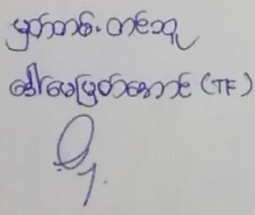 မှတ်တမ်းတင်သူ
ဒေါ်မေမြတ်အောင် (TF)